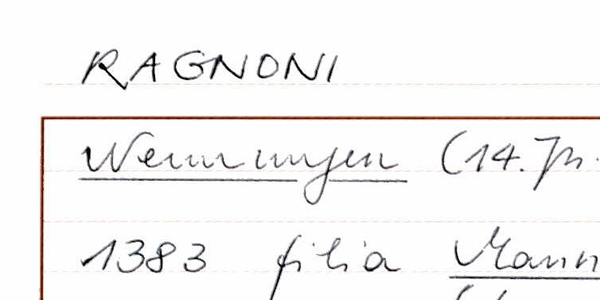 RAGNONI
Wennungen (14. Jh.
1383 filia Mann